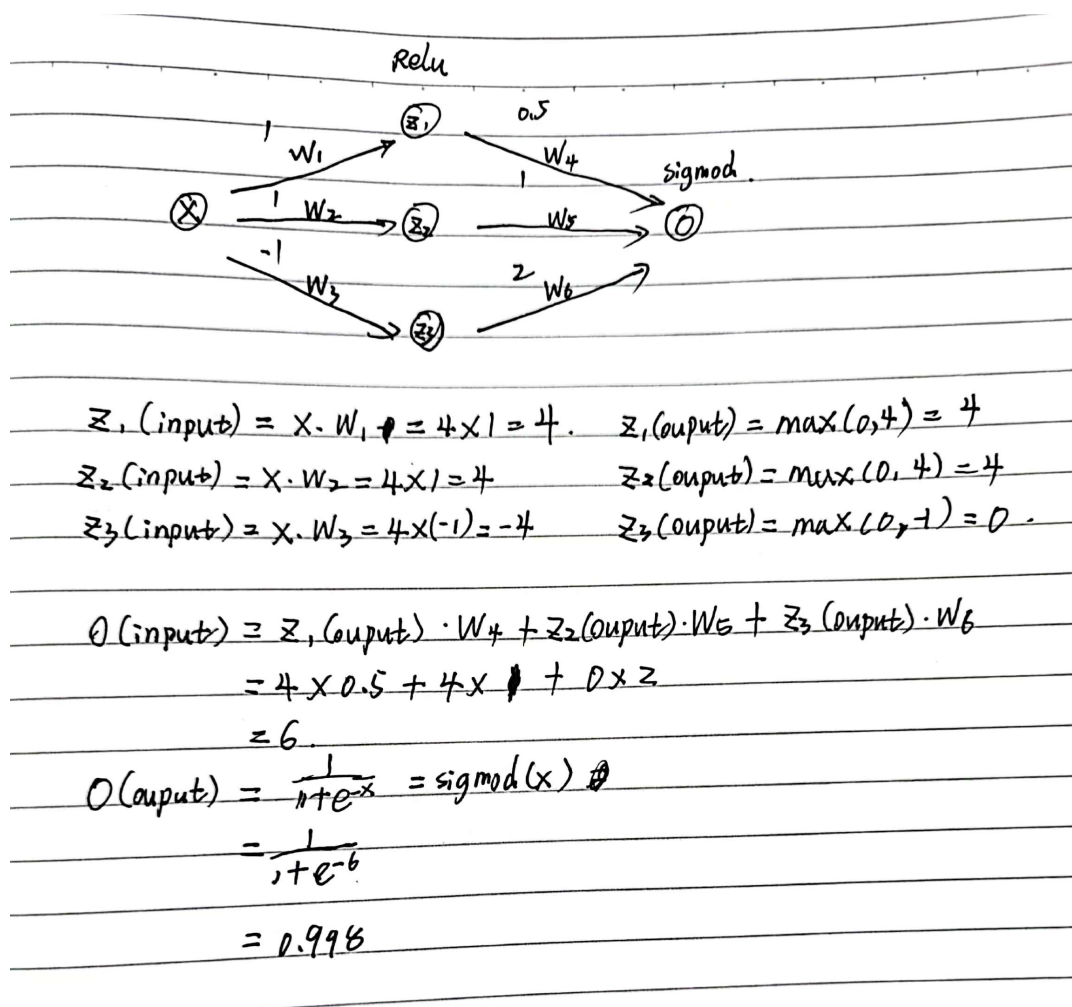 Relu
1 W1 Z1 0.5 W4
sigmod.
X 1 W2 Z2 1 W5 O
-1 W3 Z3 2 W6
Z1 (input) = X. W1 = 4×1 = 4. Z1 (ouput) = max(0,4) = 4
Z2 (input) = X·W2 = 4×1 = 4 Z2 (ouput) = max(0, 4) = 4
Z3 (input) = X. W3 = 4×(-1) = -4 Z3 (ouput) = max(0,-1) = 0.
O (input) = Z1 (ouput) · W4 + Z2 (ouput)·W5 + Z3 (ouput)·W6
= 4 × 0.5 + 4 × 1 + 0×2
= 6.
O (ouput) = 1/(1+e^-x) = sigmod(x)
= 1/(1+e^-6)
= 0.998